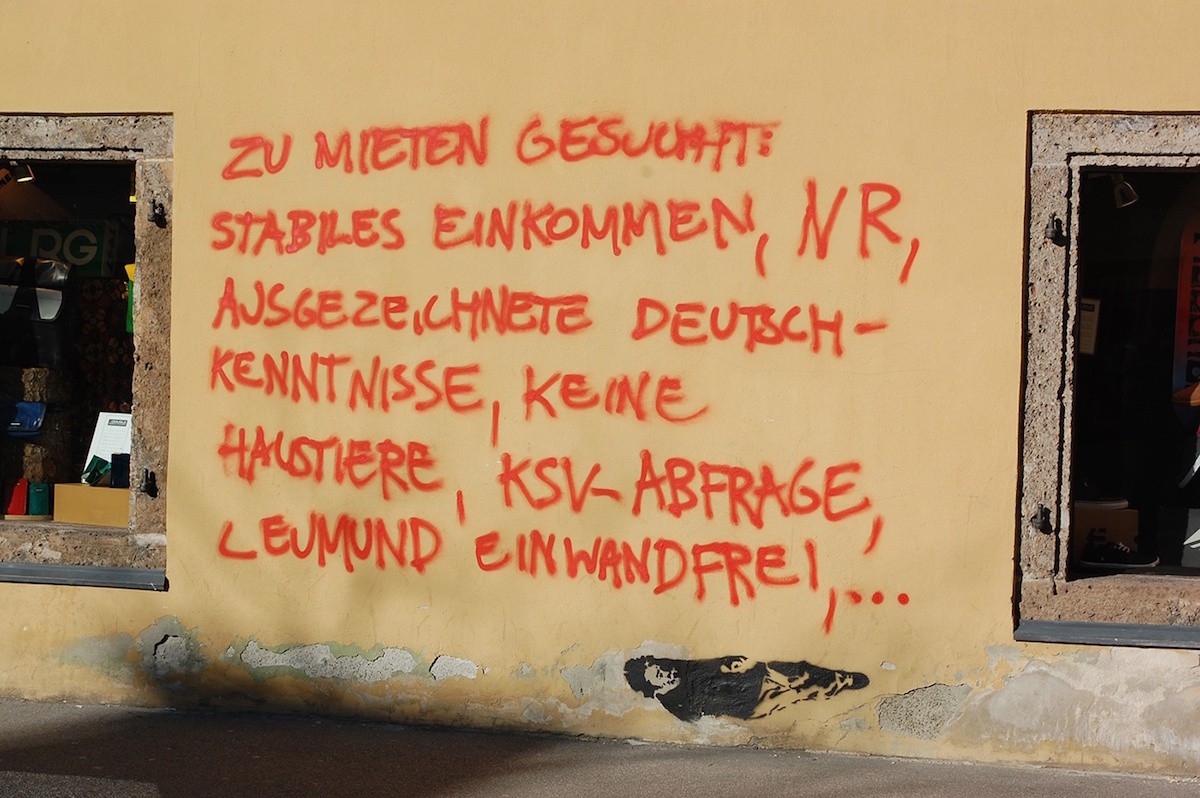 ZU MIETEN GESUCHT:
STABILES EINKOMMEN, NR,
AUSGEZEICHNETE DEUTSCH-
KENNTNISSE, KEINE
HAUSTIERE, KSV-ABFRAGE,
LEUMUND EINWANDFREI,...
LRG